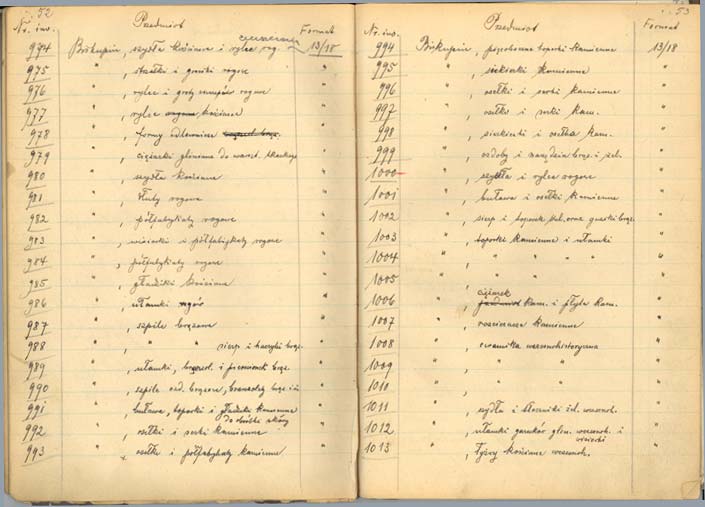 52
Nr. inw. Przedmiot Format
974 Biskupin, szydła kościane i rylce rog. 13/18
975 " , i groty rogowe "
976 " , rylce i groty rogowe "
977 " , rylce kościane "
978 " , formy odlewnicze "
979 " , ciężarki gliniane do warszt. tkackiego "
980 " , szydła kościane "
981 " , dłuty rogowe "
982 " , półfabrykaty rogowe "
983 " , wisiorki i półfabrykaty rogowe "
984 " , półfabrykaty rogowe "
985 " , gładziki kościane "
986 " , ułamki rogów "
987 " , szpile brązowe "
988 " , " " sierp i haczyki brąz. "
989 " , ułamki, i pierścionek brąz. "
990 " , szpile brązowe, bransolety brąz. "
991 " , buława, toporki i gładziki kamienne "
do obróbki skóry
992 " , osełki i kamienne "
993 " , osełki i półfabrykaty kamienne "
53
Nr. inw. Przedmiot Format
994 Biskupin, toporki kamienne 13/18
995 " , siekierki kamienne "
996 " , osełki i kamienne "
997 " , osełki i kam. "
998 " , siekierki i osełka kam. "
999 " , ozdoby i narzędzia brąz. i żel. "
1000 " , szydła i rylce rogowe "
1001 " , buława i osełki kamienne "
1002 " , sierp i toporek żel. oraz guziki brąz. "
1003 " , toporki kamienne i ułamki "
1004 " , " " " "
1005 " , " " " "
ciężarek
1006 " , kam. i płyta kam. "
1007 " , rozcieracze kamienne "
1008 " , ceramika wczesnohistoryczna "
1009 " , " " "
1010 " , " " "
1011 " , szydła i żel. wczesnoh. "
1012 " , ułamki garnków glin. wczesnoh. i "
wisiorki
1013 " , łyżwy kościane wczesnoh. "